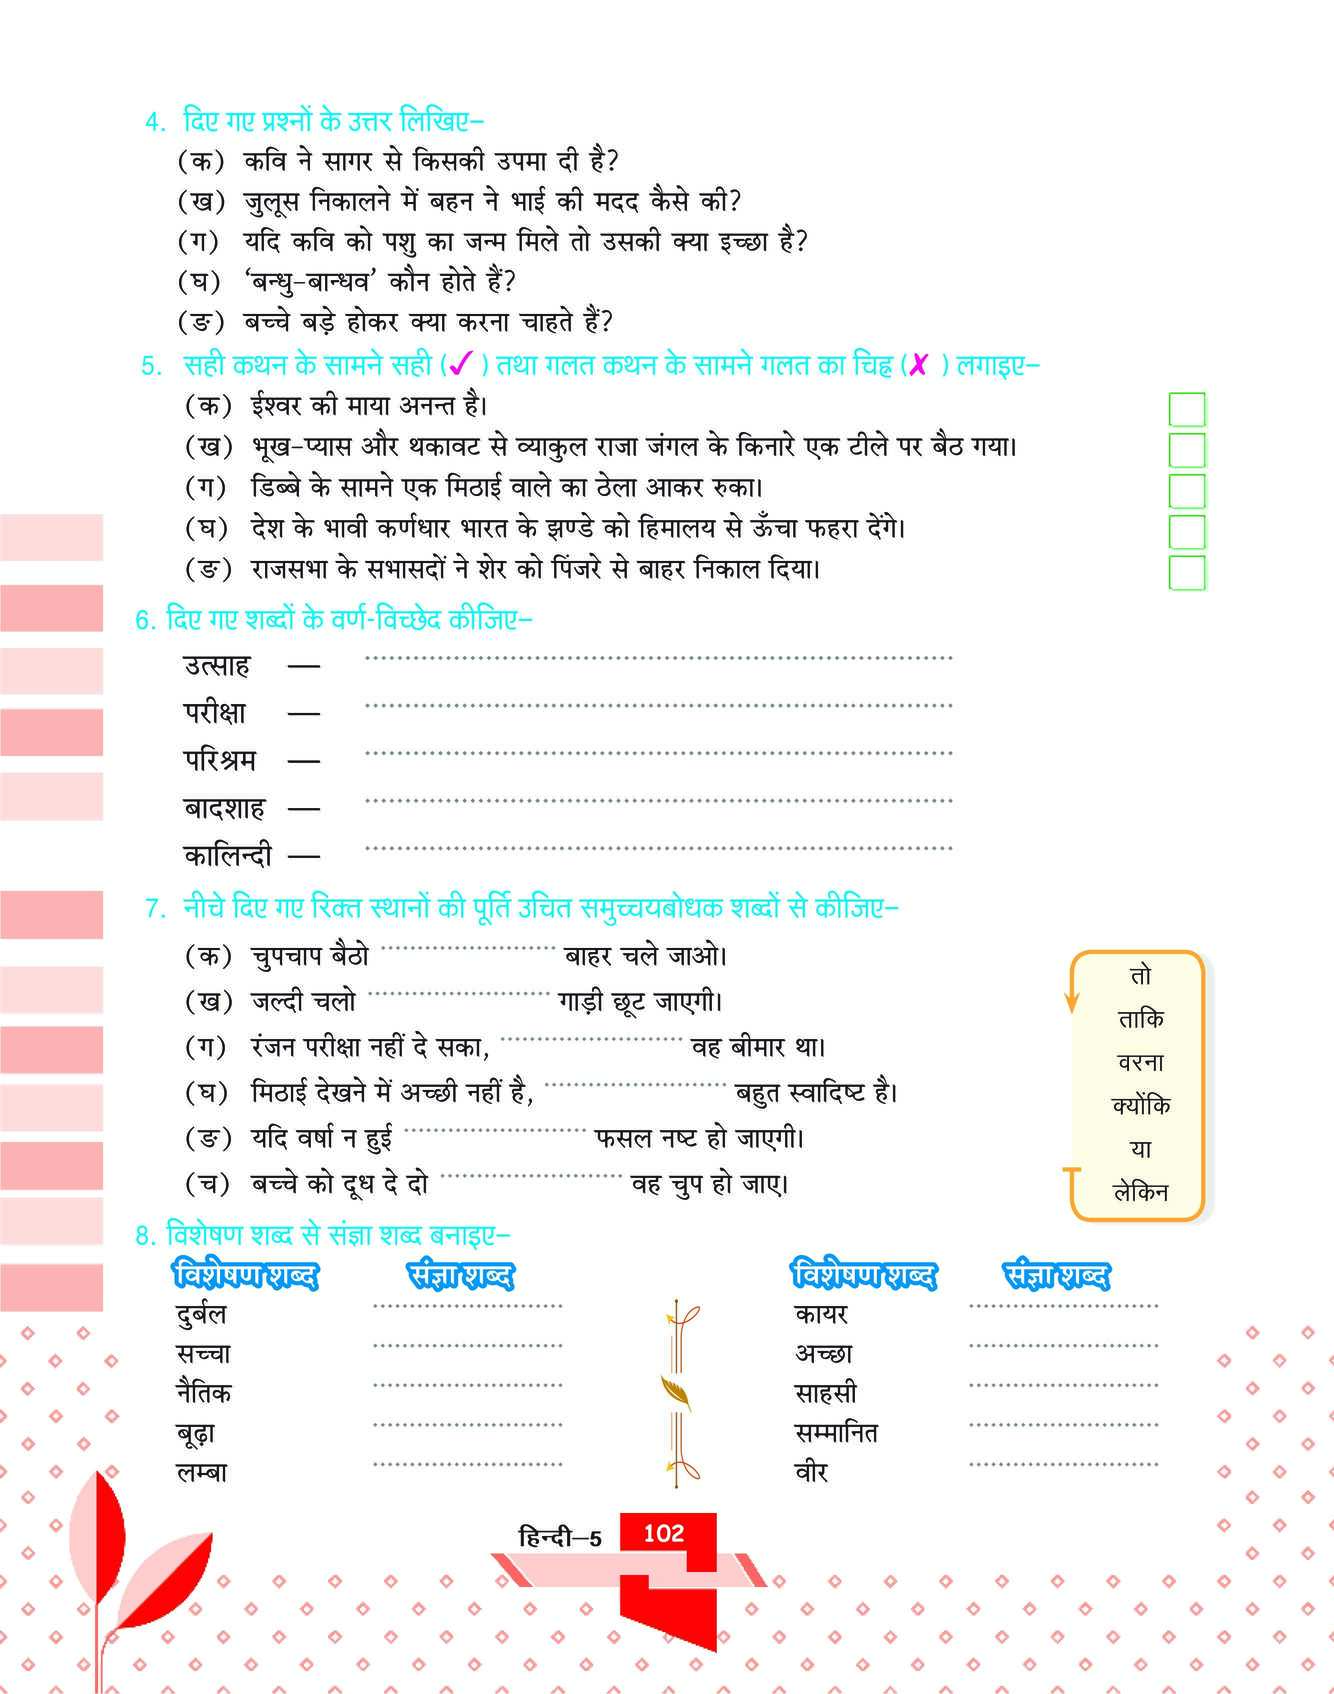 4. दिए गए प्रश्नों के उत्तर लिखिए–
(क) कवि ने सागर से किसकी उपमा दी है?
(ख) जुलूस निकालने में बहन ने भाई की मदद कैसे की?
(ग) यदि कवि को पशु का जन्म मिले तो उसकी क्या इच्छा है?
(घ) ‘बन्धु-बान्धव’ कौन होते हैं?
(ङ) बच्चे बड़े होकर क्या करना चाहते हैं?
5. सही कथन के सामने सही (✓) तथा गलत कथन के सामने गलत का चिह्न (✗) लगाइए–
(क) ईश्वर की माया अनन्त है।
(ख) भूख-प्यास और थकावट से व्याकुल राजा जंगल के किनारे एक टीले पर बैठ गया।
(ग) डिब्बे के सामने एक मिठाई वाले का ठेला आकर रुका।
(घ) देश के भावी कर्णधार भारत के झण्डे को हिमालय से ऊँचा फहरा देंगे।
(ङ) राजसभा के सभासदों ने शेर को पिंजरे से बाहर निकाल दिया।
6. दिए गए शब्दों के वर्ण-विच्छेद कीजिए–
उत्साह — ....................
परीक्षा — ....................
परिश्रम — ....................
बादशाह — ....................
कालिन्दी — ....................
7. नीचे दिए गए रिक्त स्थानों की पूर्ति उचित समुच्चयबोधक शब्दों से कीजिए–
(क) चुपचाप बैठो .................... बाहर चले जाओ।
(ख) जल्दी चलो .................... गाड़ी छूट जाएगी।
(ग) रंजन परीक्षा नहीं दे सका, .................... वह बीमार था।
(घ) मिठाई देखने में अच्छी नहीं है, .................... बहुत स्वादिष्ट है।
(ङ) यदि वर्षा न हुई .................... फसल नष्ट हो जाएगी।
(च) बच्चे को दूध दे दो .................... वह चुप हो जाए।
तो
ताकि
वरना
क्योंकि
या
लेकिन
8. विशेषण शब्द से संज्ञा शब्द बनाइए–
विशेषण शब्द संज्ञा शब्द विशेषण शब्द संज्ञा शब्द
दुर्बल .................... कायर ....................
सच्चा .................... अच्छा ....................
नैतिक .................... साहसी ....................
बूढ़ा .................... सम्मानित ....................
लम्बा .................... वीर ....................
हिन्दी–5 102